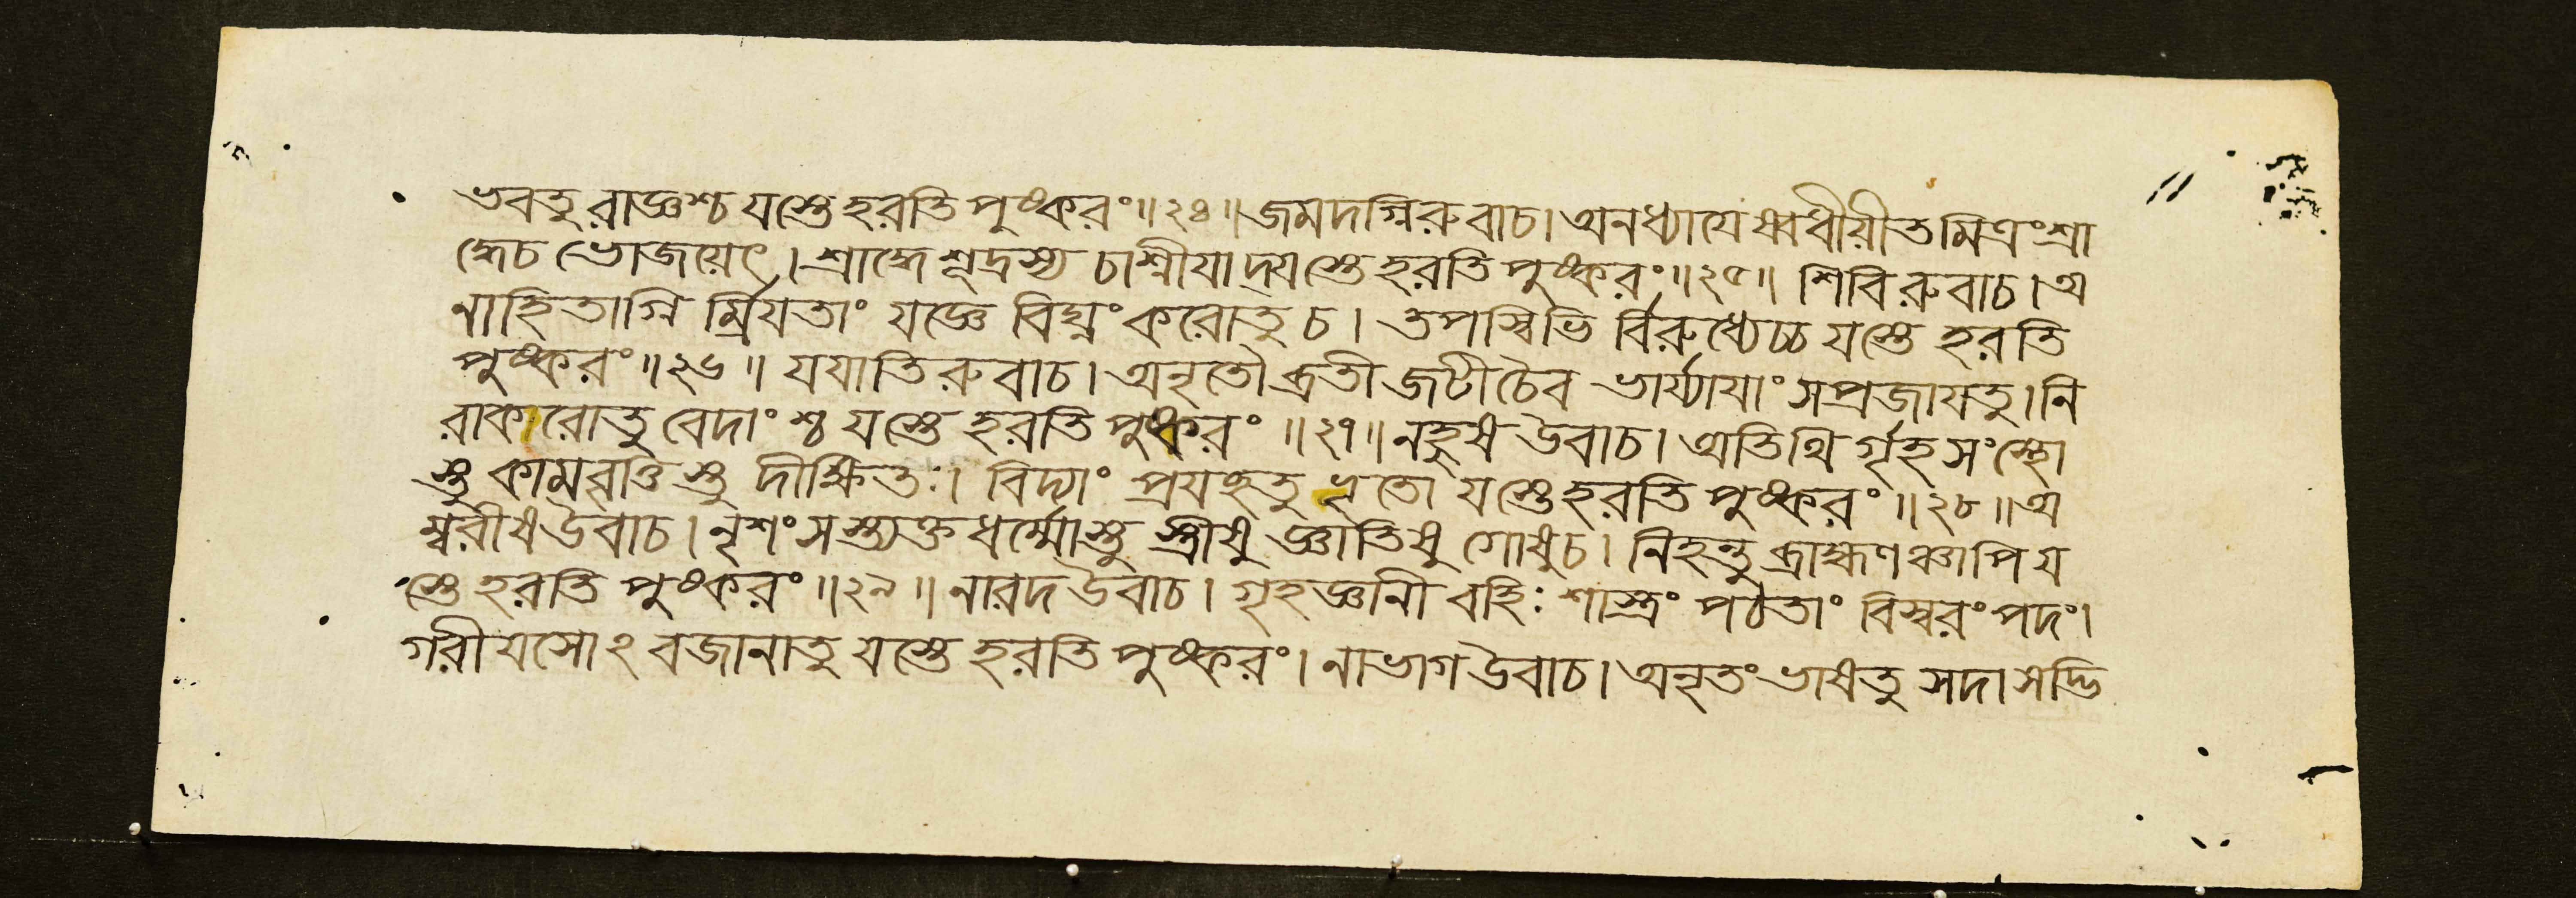 ভবতু রাজ্ঞশ্চ যস্তে হরতি পুষ্করং॥২৪॥ জমদগ্নিরুবাচ। অনধ্যাযেষ্বধীয়ীত মিত্রং শ্রা
দ্ধেচ ভোজয়েৎ। শ্রাদ্ধে শূদ্রস্য চাশ্নীযাদ্যস্তে হরতি পুষ্করং॥২৫॥ শিবিরুবাচ। অ
নাহিতাগ্নি র্ম্রিযতাং যজ্ঞে বিঘ্নং করোতু চ। তপস্বিভি র্বিরুধ্যেচ্চ যস্তে হরতি
পুষ্করং॥২৬॥ যযাতিরুবাচ। অনৃতৌ ব্রতী জটী চৈব ভার্য্যাযাং সপ্রজাযতু। নি
রাকারোতু বেদাংশ্চ যস্তে হরতি পুষ্করং॥২৭॥ নহুষ উবাচ। অতিথি র্গৃহসংস্থো
স্তু কামবৃত্তিস্তু দীক্ষিতঃ। বিদ্যাং প্রযচ্ছতু ভৃতো যস্তে হরতি পুষ্করং॥২৮॥ অ
ম্বরীষ উবাচ। নৃশংসস্ত্যক্তধর্ম্মোস্তু স্ত্রীষু জ্ঞাতিষু গোষুচ। নিহন্তু ব্রাহ্মণঞ্চাপি য
স্তে হরতি পুষ্করং॥২৯॥ নারদ উবাচ। গৃহজ্ঞানী বহিঃ শাস্ত্রং পঠতাং বিস্বরং পদং।
গরীযসোঽবজানাতু যস্তে হরতি পুষ্করং। নাভাগ উবাচ। অনৃতং ভাষতু সদা সদ্ভি